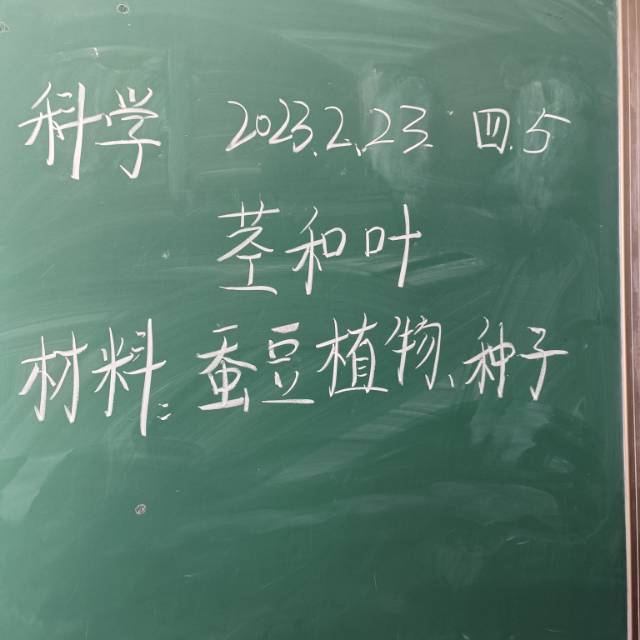 科学 2023.2.23. 四.5
茎和叶
材料:蚕豆植物、种子